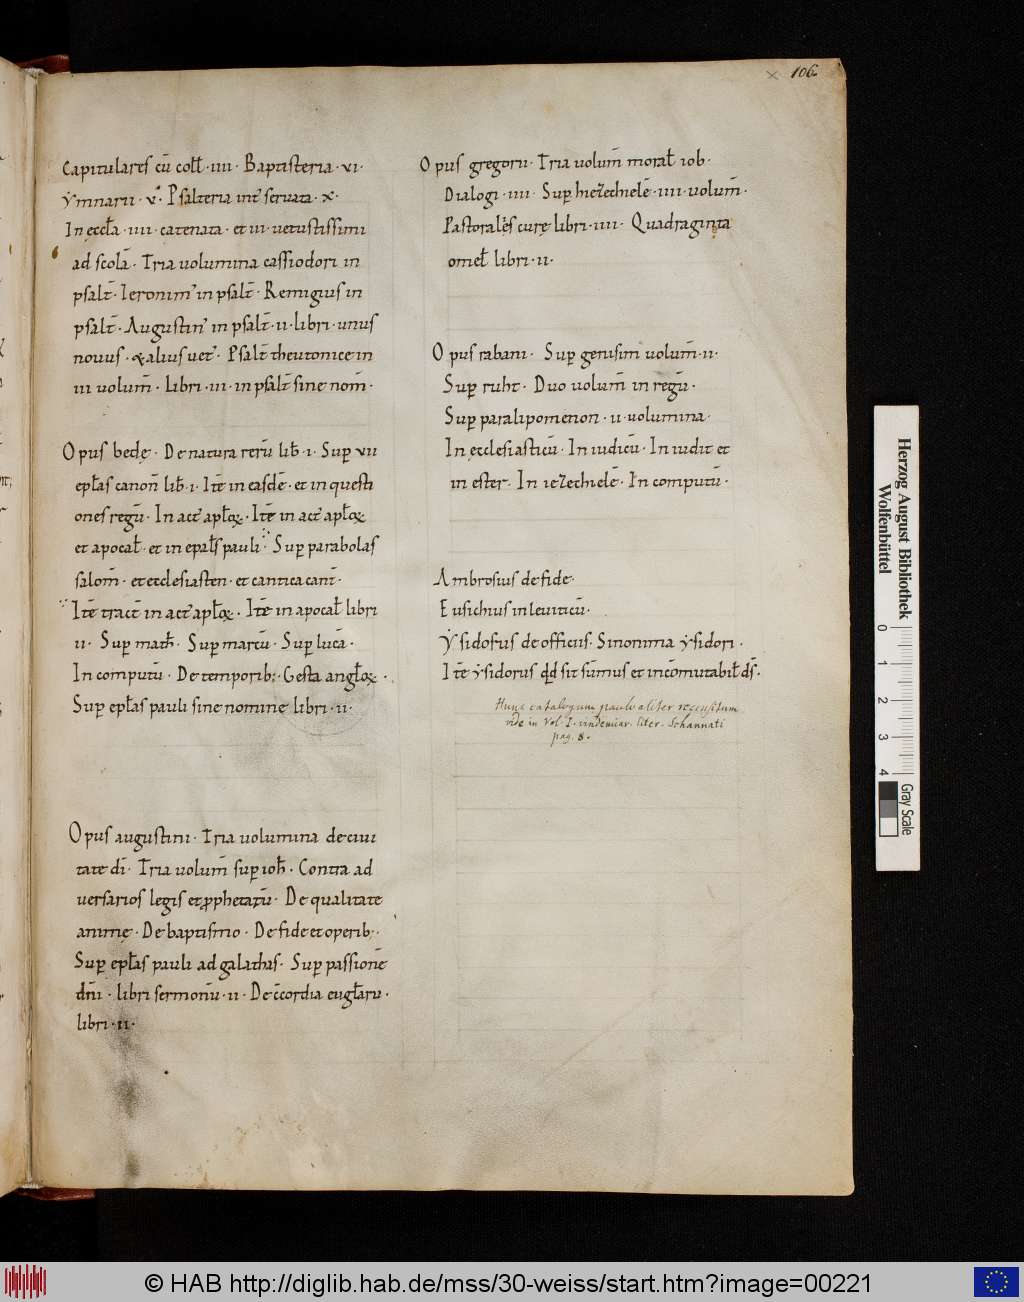 106.
Capitulares cū coll̄ · iiii · Baptisteria · vi ·
ẏmnarii · v · Psalteria int̄ seruata · x ·
In ęccl̄a · iiii · catenata · et iii · uetustissimi
ad scolā · Tria uolumina cassiodori in
psalt̄ · Ieronim' in psalt̄ · Remigius in
psalt̄ · Augustin' in psalt̄ · ii · libri · unus
nouus · & alius uet' · Psalt̄ theutonice in
iii uolum̄ · Libri · iii · in psalt̄ sine nom̄ ·
Opus bedę · De natura rerū lib̄ · i · Suꝑ vii
epl̄as canon̄ lib̄ · i · Itē in easdē · et in questi
ones regū · In act' apl̄oꝝ · Itē in act' apl̄oꝝ
et apocal̄ · et in epl̄as pauli · Suꝑ parabolas
salom̄ · et ecclesiasten · et cantica cant̄ ·
Itē tract̄ in act' apl̄oꝝ · Itē in apocal̄ libri
ii · Suꝑ math̄ · Suꝑ marcū · Suꝑ lucā ·
In computū · De temporib; · Gesta angl̄oꝝ ·
Suꝑ epl̄as pauli sine nomine libri · ii ·
Opus augustini · Tria uolumina de ciui
tate dī · Tria uolum̄ suꝑ ioh̄ · Contra ad
uersarios legis et ꝓphetarū · De qualitate
animę · De baptismo · De fide et operib; ·
Suꝑ epl̄as pauli ad galathas · Suꝑ passionē
dn̄i · libri sermonū · ii · De c̄cordia eugl̄aru ·
libri · ii ·
Opus gregorii · Tria uolum̄ moral̄ iob ·
Dialogi · iiii · Suꝑ hiezechielē · iiii · uolum̄ ·
Pastorales curę libri · iiii · Quadraginta
omel̄ libri · ii ·
Opus rabani · Suꝑ genisim uolum̄ · ii ·
Suꝑ ruht · Duo uolum̄ in regū ·
Suꝑ paralipomenon · ii · uolumina ·
In ęcclesiasticū · In iudicū · In iudit et
in ester · In iezechielē · In computū ·
Ambrosius de fide ·
Eusichius in leuiticū ·
ẏsidorus de officiis · Sinonima ẏsidori ·
Itē ẏsidorus qd̄ sit sūmus et incōmutabil̄ ds̄ ·
Hunc catalogum paulo aliter recensitum
vide in Vol. I. vindemiar. liter. Schannati
pag. 8.
Herzog August Bibliothek
Wolfenbüttel
0 1 2 3 4
Gray Scale
© HAB http://diglib.hab.de/mss/30-weiss/start.htm?image=00221